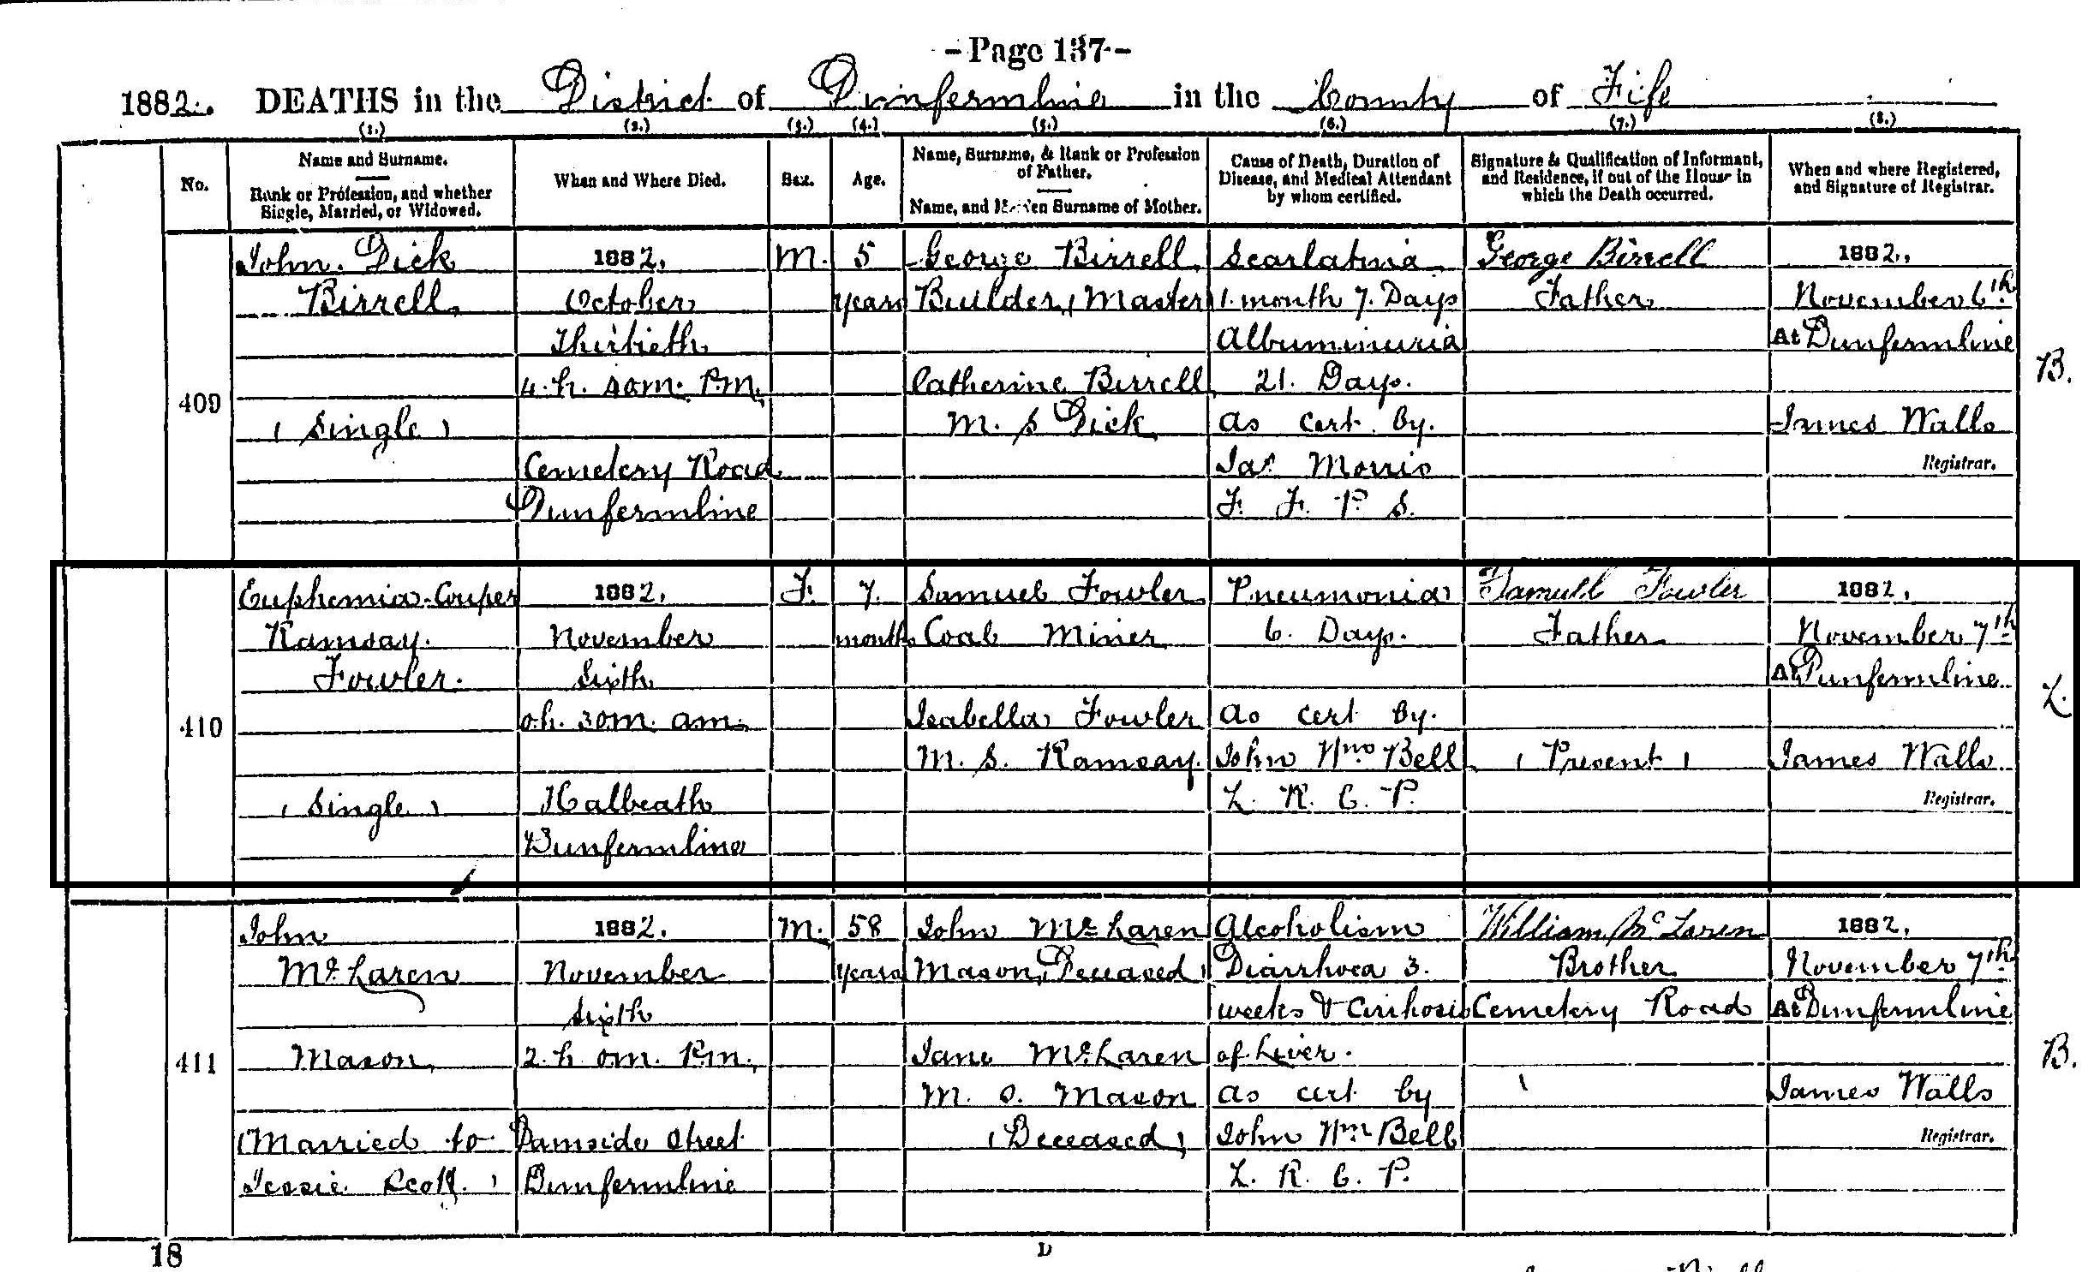 - Page 137 -
1882. DEATHS in the District of Dunfermline in the County of Fife
(1.) (2.) (3.) (4.) (5.) (6.) (7.) (8.)
No.
Name and Surname.
Rank or Profession, and whether
Single, Married, or Widowed.
When and Where Died.
Sex.
Age.
Name, Surname, & Rank or Profession
of Father.
Name, and Maiden Surname of Mother.
Cause of Death, Duration of
Disease, and Medical Attendant
by whom certified.
Signature & Qualification of Informant,
and Residence, if out of the House in
which the Death occurred.
When and where Registered,
and Signature of Registrar.
409
John Dick
Birrell
(Single)
1882,
October
Thirtieth
4. h. 40m. P.M.
Cemetery Road
Dunfermline
M.
5
years
George Birrell
Builder, (Master
Catherine Birrell
M. S Dick
Scarlatina
1. month 7. Days
Albuminuria
21. Days.
as cert. by.
Jas. Morris
F. F. P. S.
George Birrell
Father
1882,
November 6th
At Dunfermline
James Walls
Registrar.
B.
410
Euphemia Couper
Ramsay.
Fowler.
(Single)
1882,
November
Sixth
0.h. 30m. am.
Halbeath
Dunfermline
F.
7.
months
Samuel Fowler
Coal Miner
Isabella Fowler
M. S. Ramsay.
Pneumonia
6. Days.
as cert by.
John Wm Bell
L. R. C. P.
Samuel Fowler
Father
(Present)
1882,
November 7th
At Dunfermline
James Walls
Registrar.
L.
411
John
McLaren
Mason
(Married to
Jessie Scott.)
1882,
November
Sixth
2. h. 0m. P.m.
Damside Street
Dunfermline
M.
58
years
John McLaren
Mason, (Deceased)
Jane McLaren
M. S. Mason
(Deceased)
Alcoholism
Diarrhoea 3.
weeks & Cirhosis
of Liver.
as cert by
John Wm Bell
L. R. C. P.
William McLaren
Brother
Cemetery Road
1882,
November 7th
At Dunfermline
James Walls
Registrar.
B.
18
D